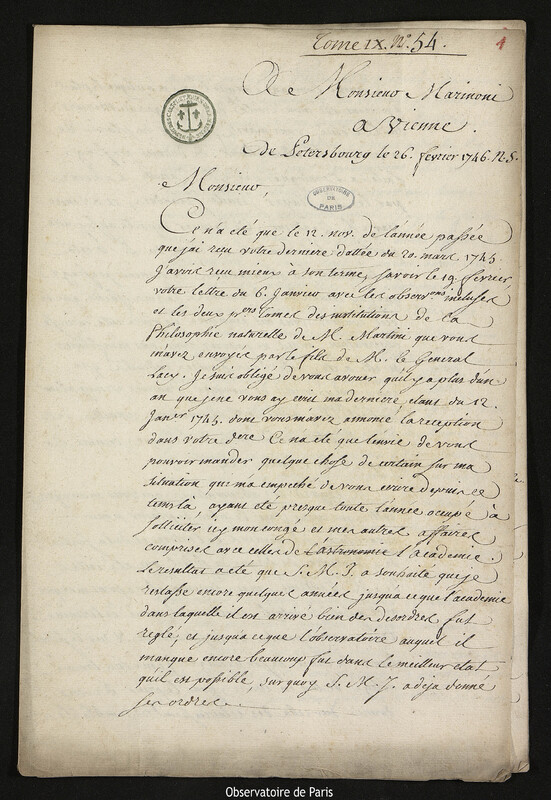 Tome IX. N.º 54.
1
A Monsieur Marinoni
a Vienne.
de Petersbourg le 26. fevrier 1746. N.S.
OBSERVATOIRE
DE
PARIS
Monsieur,
Ce n'a eté que le 12. nov. de l'année passée
que j'ai reçu votre derniere dattée du 20. mars 1745.
J'avois reçu mieux à son terme, savoir le 19. fevrier,
votre lettre du 6. Janvier avec les observ.ons incluses
et les deux p.ers tomes des institutions de la
Philosophie naturelle de M. Martini que vous
m'avez envoyés par le fils de M. le General
Lacy. Je suis obligé de vous avouer qu'il y a plus d'un
an que je ne vous ay ecrit ma derniere, etant du 12.
Janer 1745. dont vous m'avez annoncé la reception
dans votre dere Ce n'a eté que l'envie de vous
pouvoir mander quelque chose de certain sur ma
situation que m'a empeché de vous ecrire depuis ce
tems là, ayant eté presque toute l'année occupé à
solliciter icy mon congé et mes autres affaires
comprises avec celles de l'astronomie l'academie.
Le resultat a eté que S. M. J. a souhaité que je
restasse encore quelques années jusqu'a ce que l'academie
dans laquelle il est arrivé bien des desordres fut
reglé; et jusqu'a ce que l'observatoire auquel il
manque encore beaucoup fut dans le meilleur etat
qu'il est possible, sur quoy S. M. J. a deja donné
ses ordres.
Observatoire de Paris